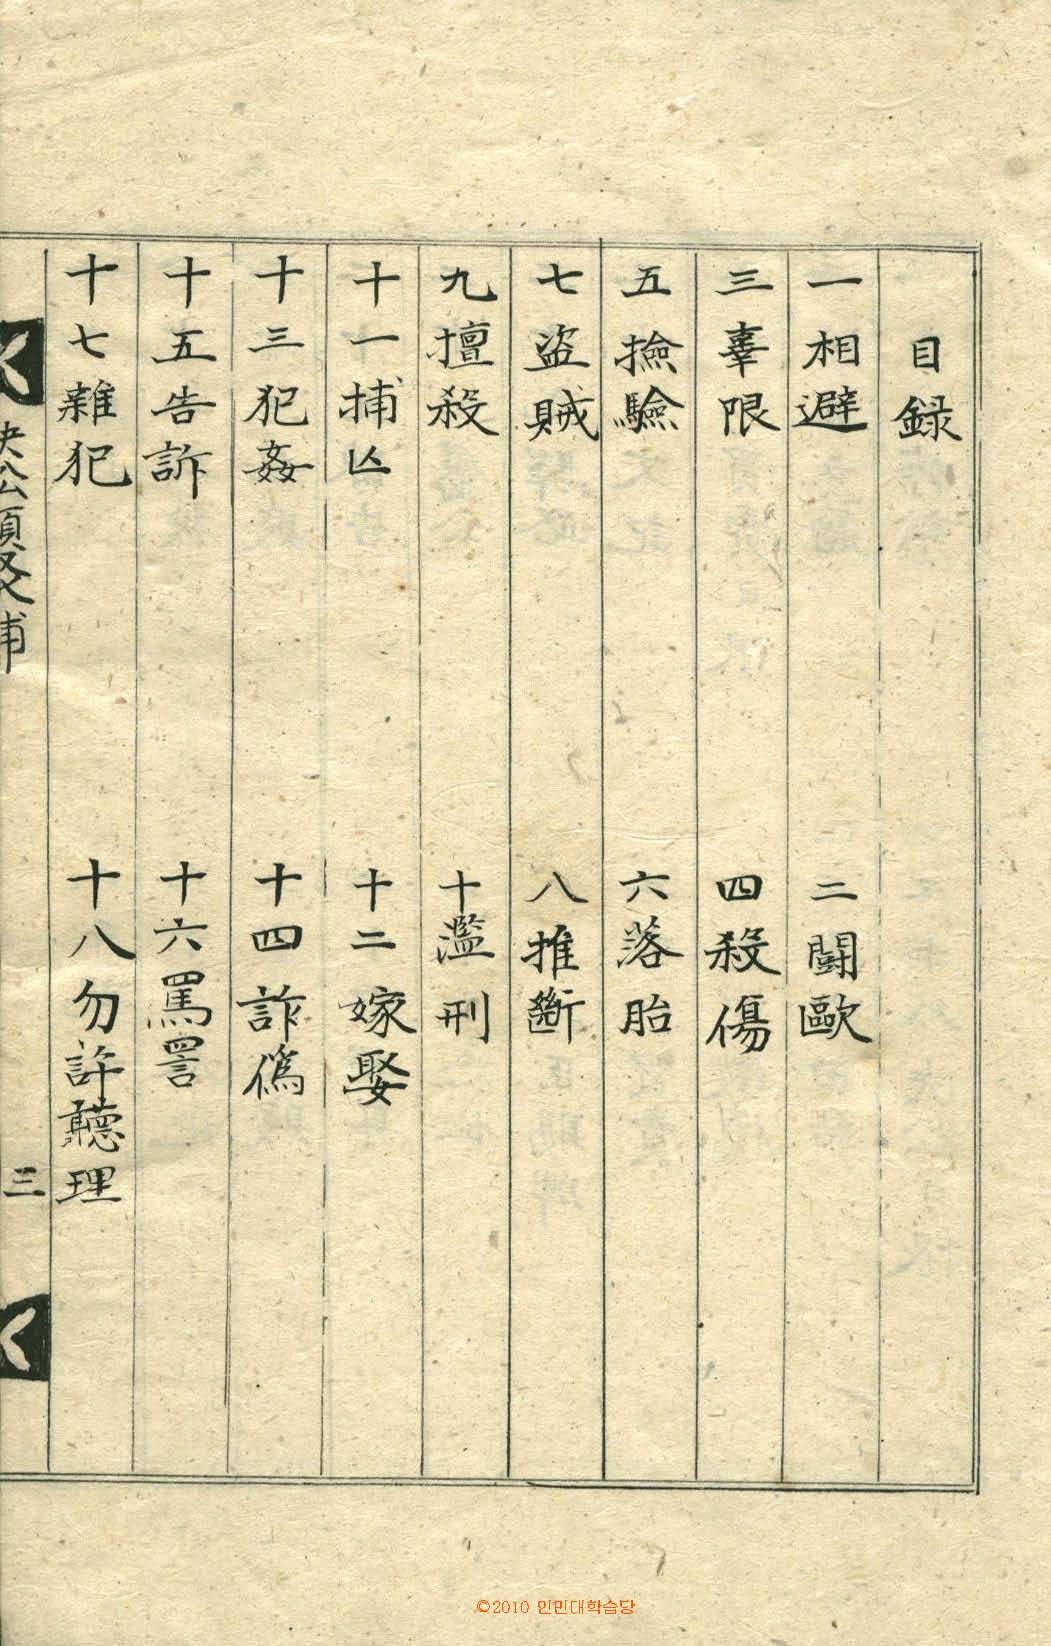 目録
一相避 二鬪毆
三辜限 四殺傷
五撿驗 六落胎
七盜賊 八推斷
九擅殺 十濫刑
十一捕亾 十二嫁娶
十三犯姦 十四詐僞
十五告訴 十六罵詈
十七雜犯 十八勿許聽理
三
©2010 인민대학습당